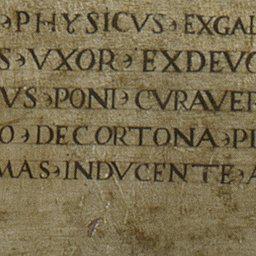 PHYSICUS › EXGAL
S › VXOR › EXDEVO
VS › PONI › CVRAVER
O › DECORTONA › PI
MAS › INDVCENTE › A